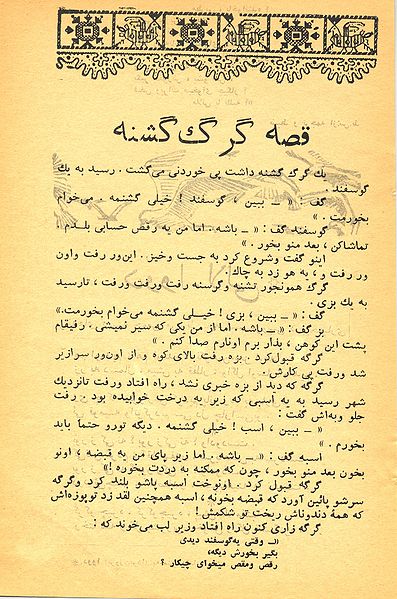 قصه گرگ گشنه
یك گرگ گشنه داشت پی خوردنی می‌گشت . رسید به یك
گوسفند .
گف : « ــ ببین ، گوسفند ! خیلی گشنمه . می‌خوام
بخورمت . »
گوسفند گف : « ــ باشه . اما من یه رقص حسابی بلدم .
تماشاکن ، بعد منو بخور . »
اینو گفت وشروع کرد به جست وخیز . این‌ور رفت واون
ور رفت و ، یه هو زد به چاك .
گرگ همونجور تشنه وگرسنه رفت ورفت ورفت ، تارسید
به یك بزی .
گف : « ــ ببین ، بزی ! خیلی گشنمه می‌خوام بخورمت.»
بز گف : « ــ باشه . اما از من یکی که سیر نمیشی . رفیقام
پشت این کوهن ، بذار برم اونارم صدا کنم . »
گرگه قبول‌کرد . بزه رفت بالای کوه و از اون‌ور سرازیر
شد ورفت پی کارش .
گرگه که دید از بزه خبری نشد ، راه افتاد ورفت تانزدیك
شهر رسید به یه اسبی که زیر یه درخت خوابیده بود . رفت
جلو وبه‌اش گفت :
« ــ ببین ، اسب ! خیلی گشنمه . دیگه تورو حتماً باید
بخورم . »
اسبه گف : « ــ باشه . اما زیر پای من یه قبضه ، اونو
بخون بعد منو بخور ، چون که ممکنه به دردت بخوره !»
گرگه قبول کرد . اونوخت اسبه پاشو بلند کرد وگرگه
سرشو پائین آورد که قبضه بخونه ، اسبه همچنین لقد زد توپوزه‌اش
که همهٔ دندوناش ریخت تو شکمش !
گرگه زاری کنون راه افتاد وزیر لب می‌خوند که :
«ــ وقتی یه‌گوسفند دیدی
بگیر بخورش دیگه،
رقص ومقص میخوای چیکار ؟